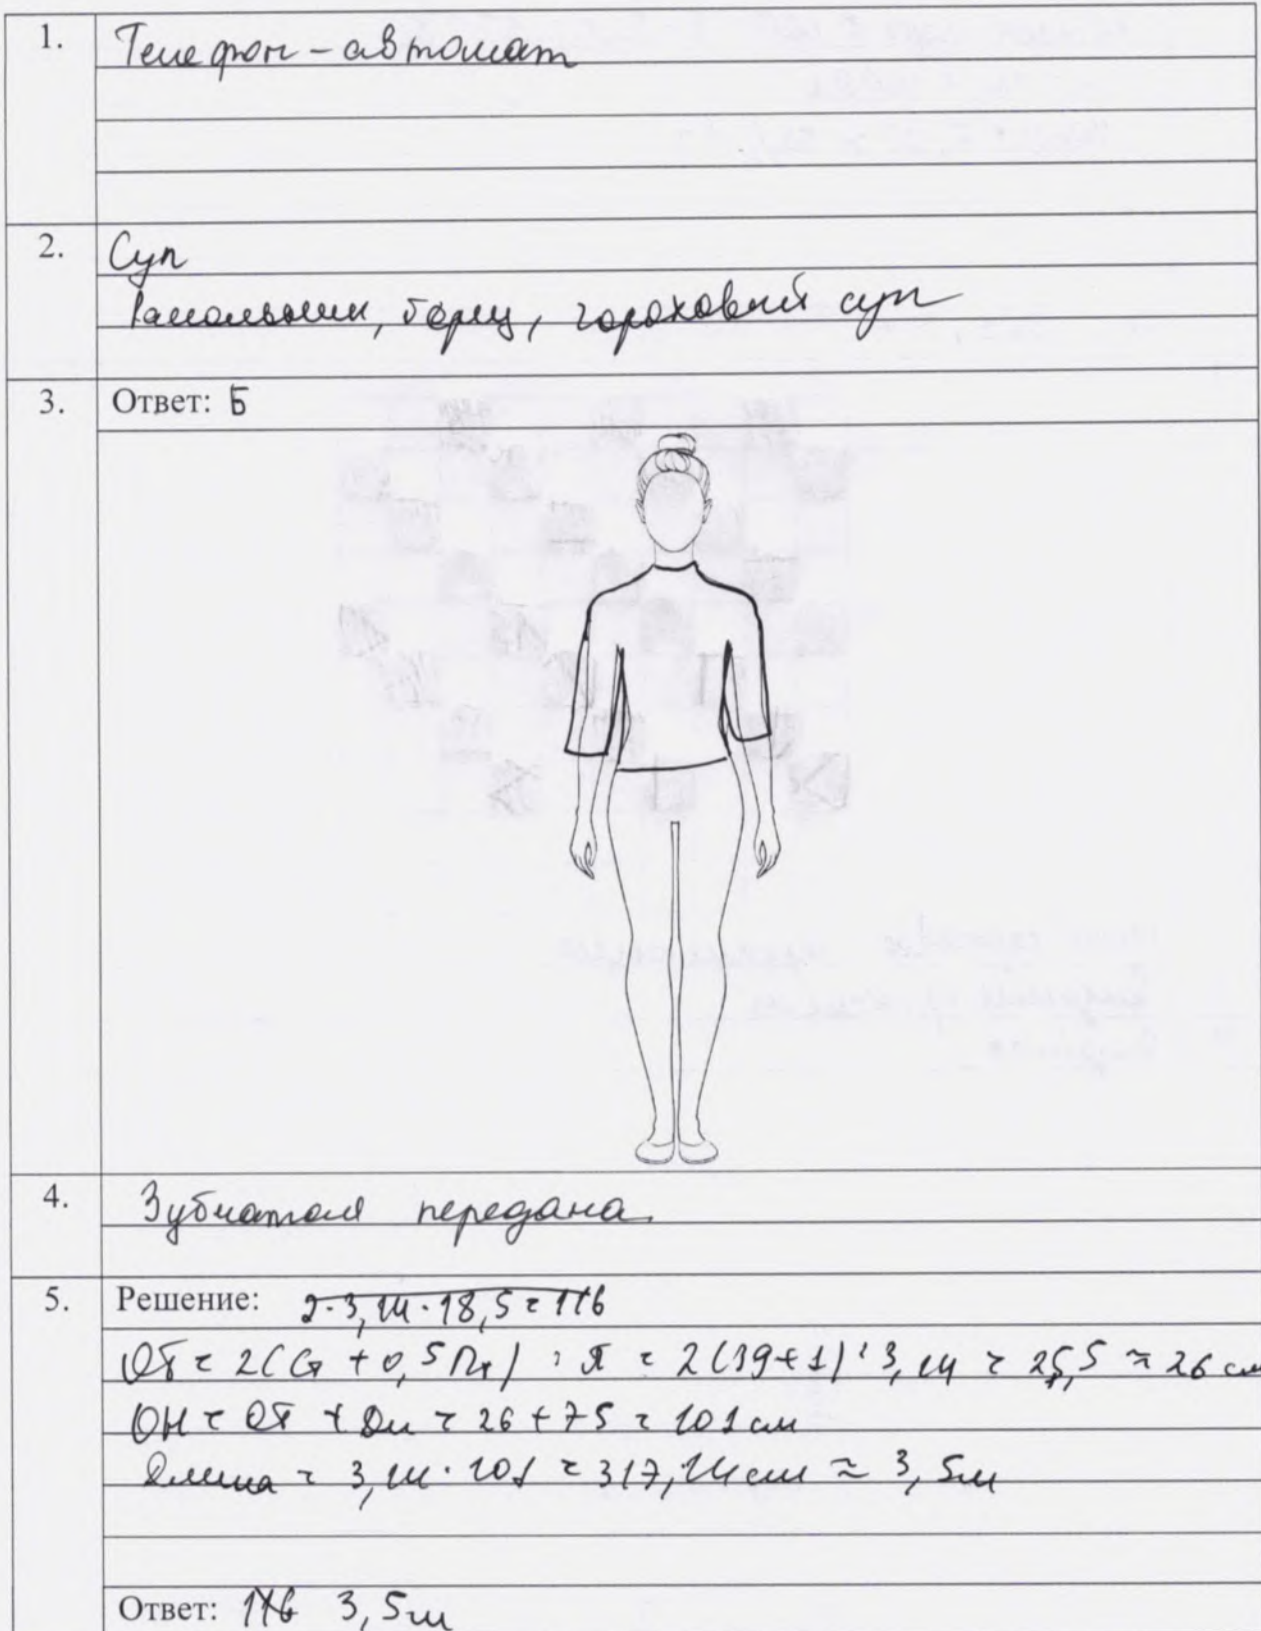 1. Телефон - автомат
2. Суп
борщ, гороховый суп
3. Ответ: Б
4. Зубчатая передача.
5. Решение: 2·3,14·18,5 = 116
ОТ = 2(Ст + 0,5Пт) : π = 2(39+1) : 3,14 = 25,5 ≈ 26 см
ОН = ОТ + Ди = 26 + 75 = 101 см
Длина = 3,14 · 101 = 317,14 см ≈ 3,5м
Ответ: 116 3,5м